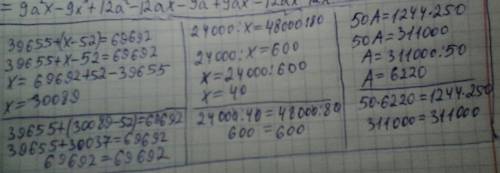 = 9a²x - 9x² + 12a² - 12ax - 9a + 9ax - 12ax
39655+(x-52)=69692
39655+x-52=69692
x= 69692+52-39655
x=30089
39655+(30089-52)=69692
39655+30037=69692
69692=69692
24000:x=48000:80
24000:x=600
x=24000:600
x=40
24000:40=48000:80
600=600
50A=1244·250
50A=311000
A=311000:50
A=6220
50·6220=1244·250
311000=311000